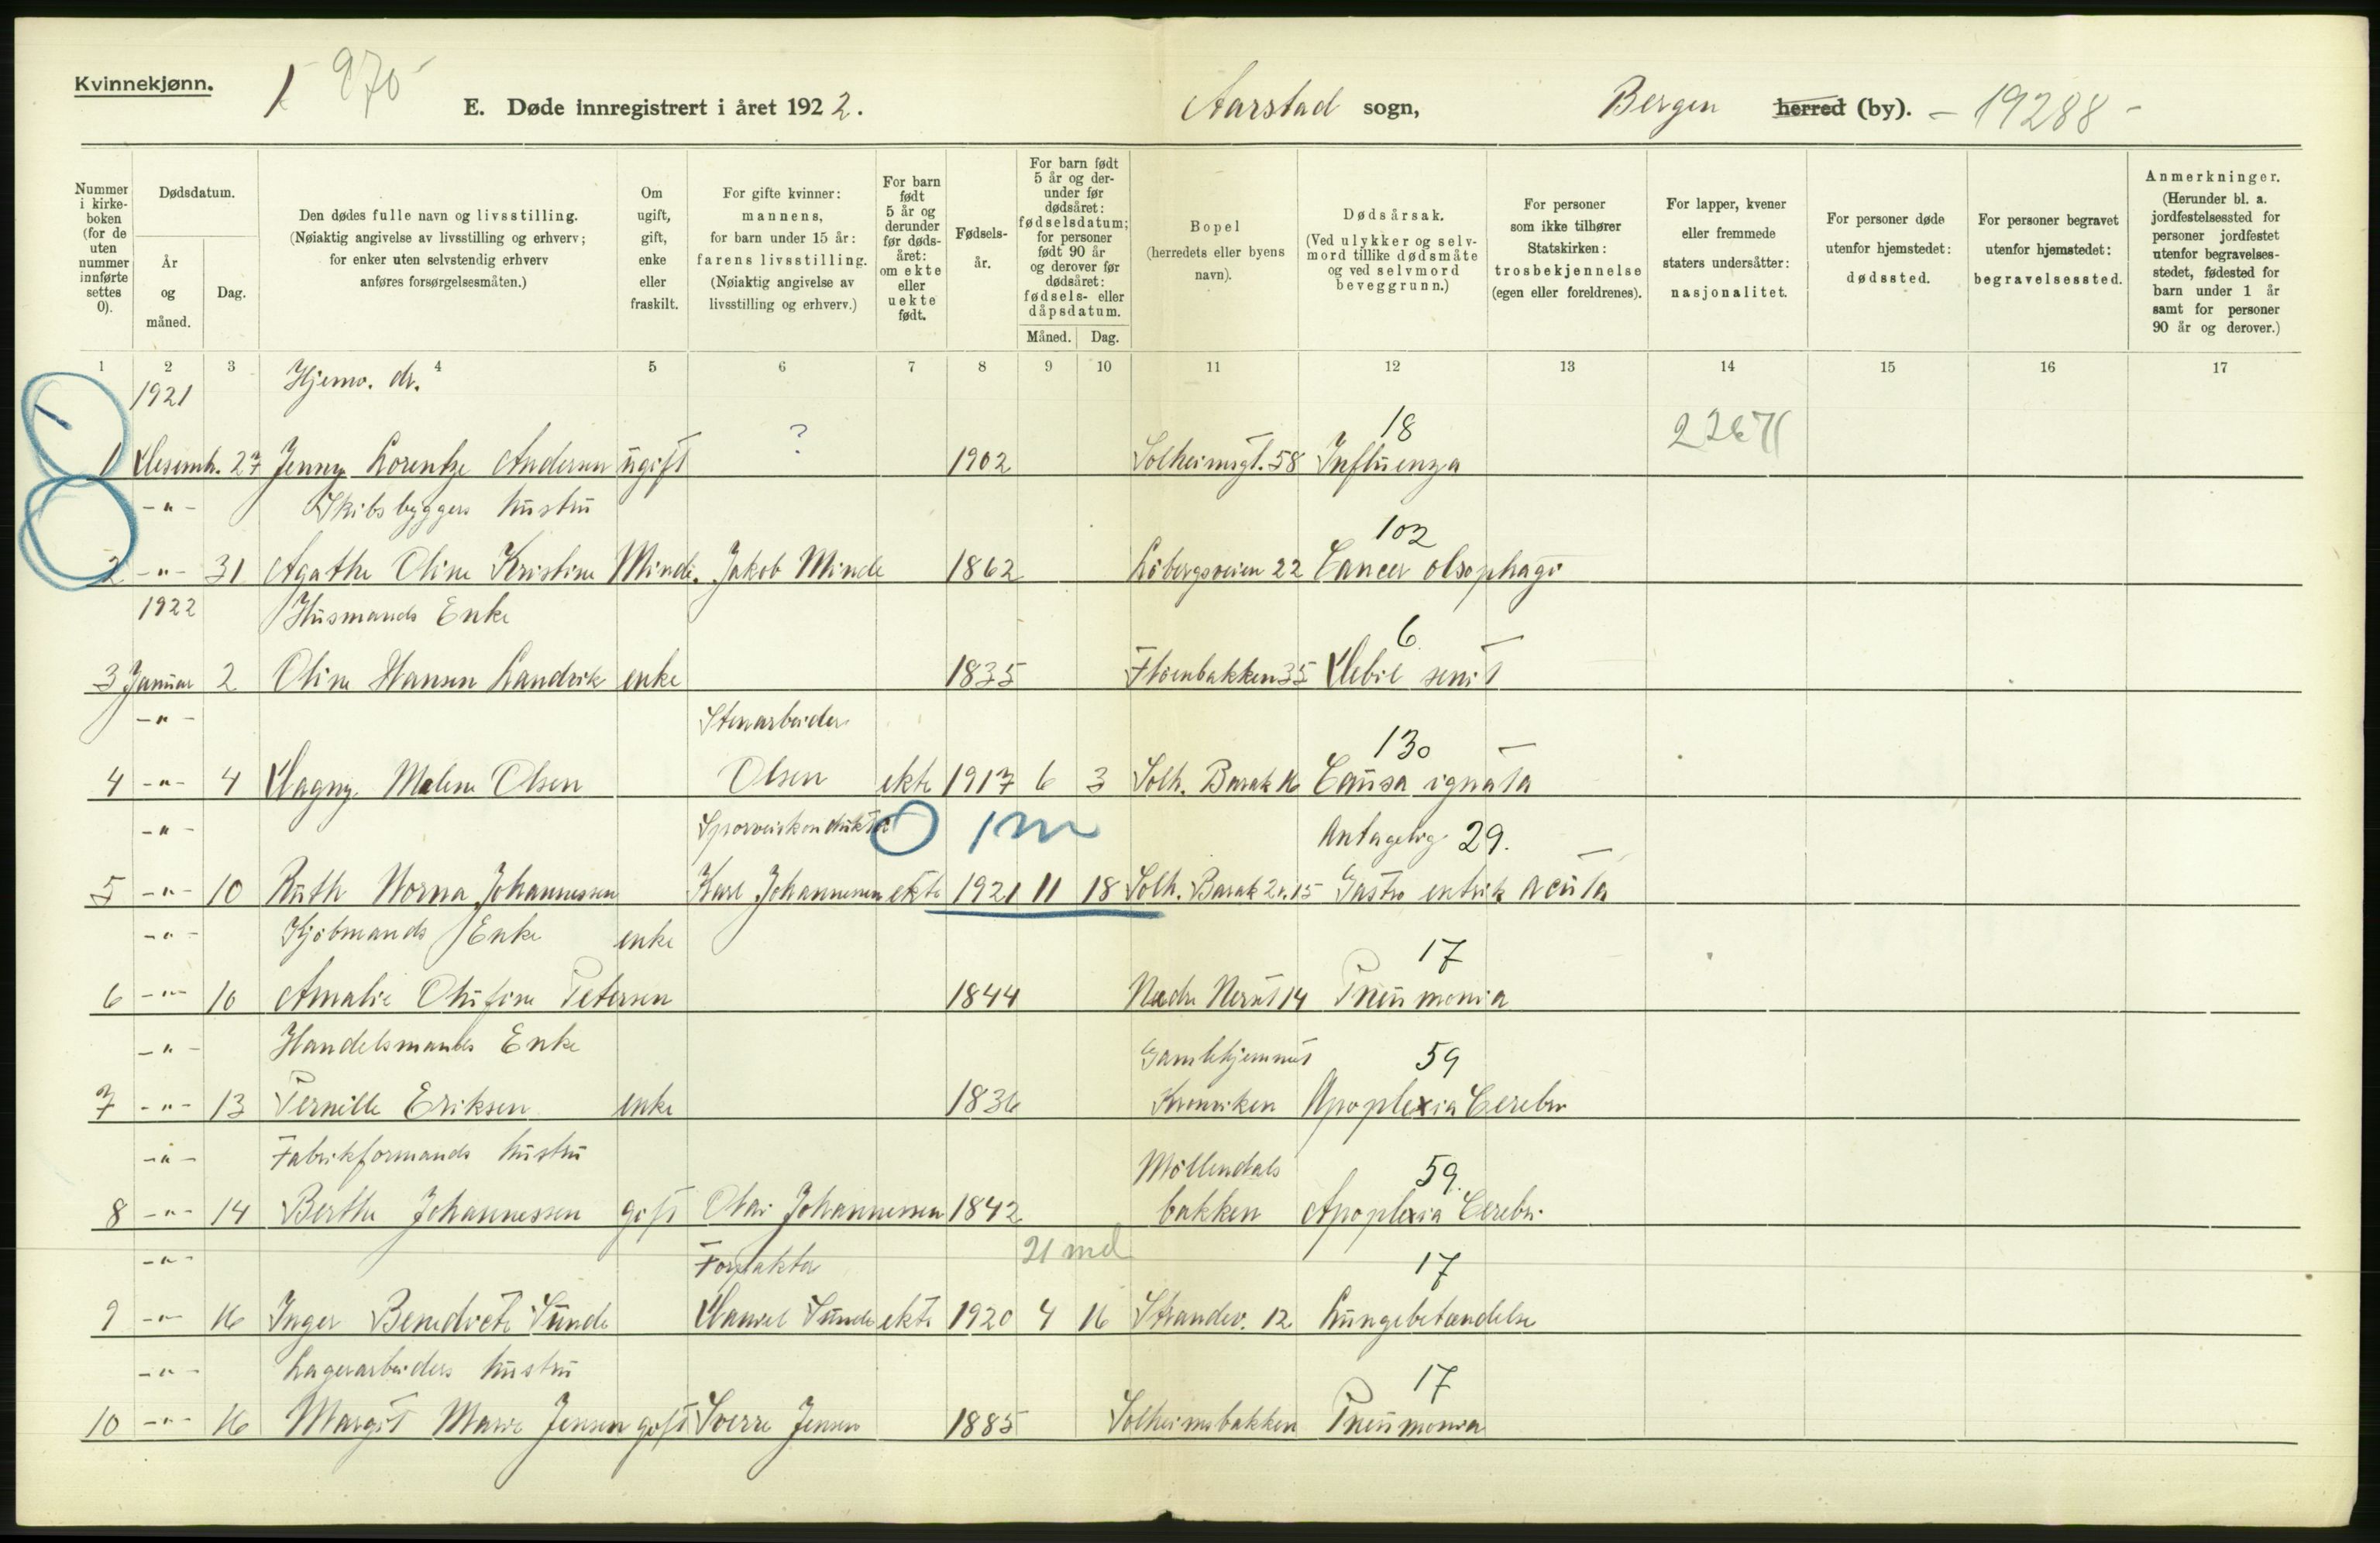 Kvinnekjønn.
1 970
E. Døde innregistrert i året 1922.
Aarstad sogn,
Bergen herred (by). - 19288 -
Nummer i kirkeboken (for de uten nummer innførte settes 0).
Dødsdatum.
År og måned.
Dag.
Den dødes fulle navn og livsstilling. (Nøiaktig angivelse av livsstilling og erhverv; for enker uten selvstendig erhverv anføres forsørgelsesmåten.)
Om ugift, gift, enke eller fraskilt.
For gifte kvinner: mannens, for barn under 15 år: farens livsstilling. (Nøiaktig angivelse av livsstilling og erhverv.)
For barn født 5 år og derunder før dødsåret: om ekte eller uekte født.
Fødselsår.
For barn født 5 år og derunder før dødsåret: fødselsdatum; for personer født 90 år og derover før dødsåret: fødsels- eller dåpsdatum.
Måned. Dag.
Bopel (herredets eller byens navn).
Dødsårsak. (Ved ulykker og selvmord tillike dødsmåte og ved selvmord beveggrunn.)
For personer som ikke tilhører Statskirken: trosbekjennelse (egen eller foreldrenes).
For lapper, kvener eller fremmede staters undersåtter: nasjonalitet.
For personer døde utenfor hjemstedet: dødssted.
For personer begravet utenfor hjemstedet: begravelsessted.
Anmerkninger. (Herunder bl. a. jordfestelsessted for personer jordfestet utenfor begravelsesstedet, fødested for barn under 1 år samt for personer 90 år og derover.)
1 2 3 4 5 6 7 8 9 10 11 12 13 14 15 16 17
1921 Hjemv. dr.
18
1 Desemb. 27 Jenny Lorentze Andersen ugift ? 1902 Solheimsgt. 58 Influenza
-"- Skibsbyggers hustru
102
2 -"- 31 Agathe Oline Kristine Minde. Jakob Minde 1862 22 Cancer
1922 Husmands Enke
6
3 Januar 2 Oline Hansen Landvik enke 1835 Fløenbakken 35 Debil senit
-"- Stenarbeider
130
4 -"- 4 Dagny Malene Olsen Olsen ekte 1917 6 3 Solh. Barak 16 Causa ignota
-"- Sporveiskonduktør 1 m Antagelig 29.
5 -"- 10 Ruth Norma Johannessen Karl Johannessen ekte 1921 11 18 Solh. Barak 2 . 15 Gastro entrik acuta
-"- Kjøbmands Enke enke
17
6 -"- 10 Amalie Olufine Petersen 1844 Nedre Nerut 14 Pneumonia
-"- Handelsmands Enke Gamlehjemmet 59
7 -"- 13 Pernille Eriksen enke 1836 Apoplexia Cerebri
-"- Fabrikformands hustru Møllendals 59.
8 -"- 14 Berthe Johannessen gift Johannessen 1842 bakken Apoplexia Cerebri
-"- Forpakter 21 md 17
9 -"- 16 Inger Benedicte Sunde Daniel Sunde ekte 1920 4 16 Strandv. 12 Lungebetændelse
-"- Lagerarbeiders hustru 17
10 -"- 16 Margit Marie Jensen gift Sverre Jensen 1885 Solheimsbakken Pneumonia